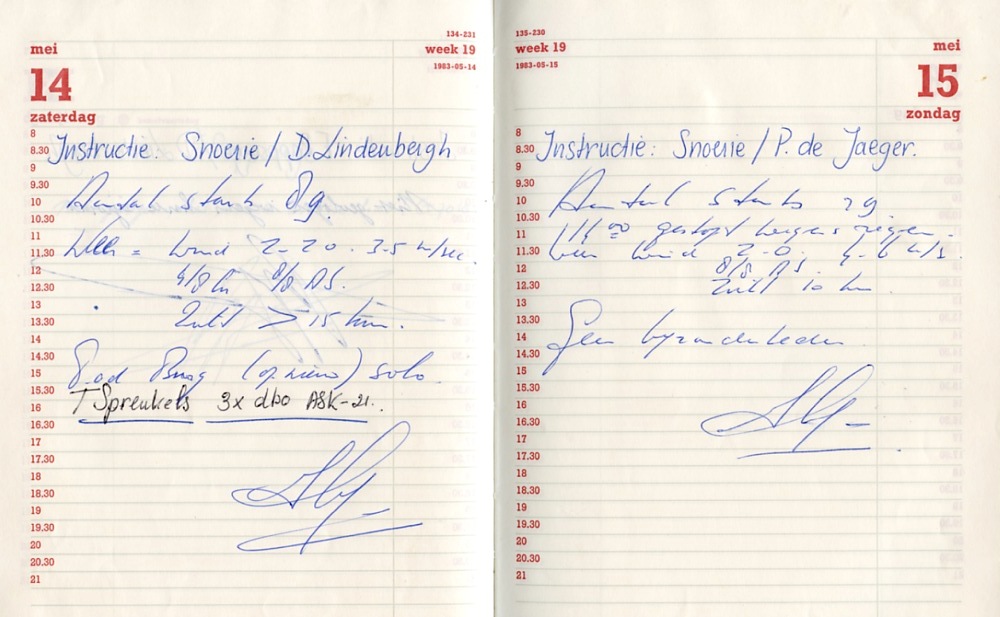 134-231
mei
week 19
1983-05-14
14
zaterdag
8
8.30
9
9.30
10
10.30
11
11.30
12
12.30
13
13.30
14
14.30
15
15.30
16
16.30
17
17.30
18
18.30
19
19.30
20
20.30
21
Instructie: Snoerie / D. Lindenbergh
Aantal starts 89.
Weer = wind 220. 3-5 m/sec.
4/8 8/8 AS.
Zicht > 15 km.
P. od Burg (opnieuw) solo.
T Spreukels 3x dbo ASK-21.
135-230
week 19
mei
1983-05-15
15
zondag
8
8.30
9
9.30
10
10.30
11
11.30
12
12.30
13
13.30
14
14.30
15
15.30
16
16.30
17
17.30
18
18.30
19
19.30
20
20.30
21
Instructie: Snoerie / P. de Jaeger.
Aantal starts 29.
00 gestopt wegens regen.
Weer wind 4-6 m/s.
8/8 AS.
Zicht 10 km.
Geen bijzonderheden.